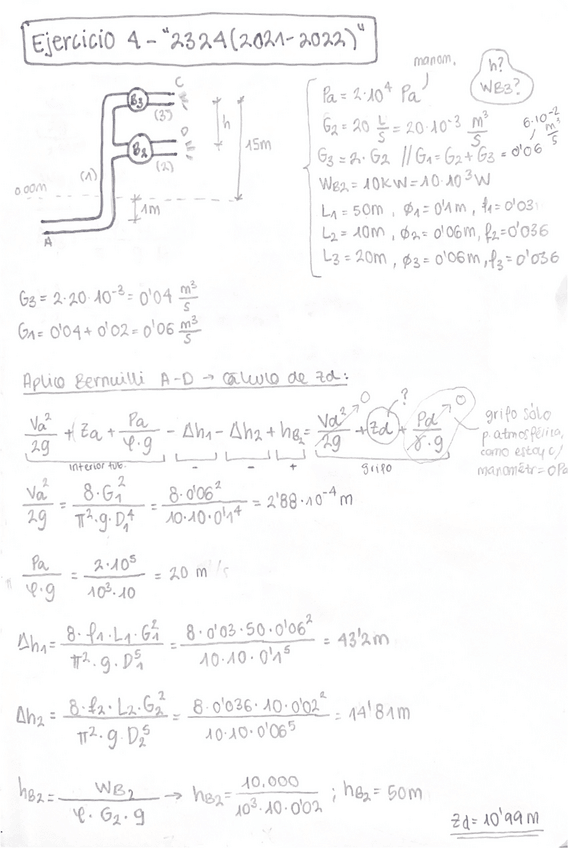 Ejercicio 4 - "2324 (2021-2022)"
manom.
h?
WB3?
C
B3
(3)
D
B2
(2)
h
15m
(1)
0.00m
1m
A
Pa = 2·10⁴ Pa
G2 = 20 L/s = 20·10⁻³ m³/s
6·10⁻² m³/s
G3 = 2·G2 // G1 = G2 + G3 = 0'06
WB2 = 10KW = 10·10³ W
L1 = 50m, Ø1 = 0'1m, f1 = 0'03
L2 = 10m, Ø2 = 0'06m, f2 = 0'036
L3 = 20m, Ø3 = 0'06m, f3 = 0'036
G3 = 2·20·10⁻³ = 0'04 m³/s
G1 = 0'04 + 0'02 = 0'06 m³/s
Aplico Bernuilli A-D → Cálculo de Zd:
Va²/2g + Za + Pa/φ·g - Δh1 - Δh2 + hB2 = Vd²/2g + Zd + Pd/γ·g
0
?
0
interior tub.
-
-
+
grifo
grifo sólo
p.atmosférica,
como estoy c/
manométr = 0Pa
Va²/2g = 8·G1²/π²·g·D1⁴ = 8·0'06²/10·10·0'1⁴ = 2'88·10⁻⁴ m
Pa/φ·g = 2·10⁵/10³·10 = 20 m
Δh1 = 8·f1·L1·G1²/π²·g·D1⁵ = 8·0'03·50·0'06²/10·10·0'1⁵ = 43'2m
Δh2 = 8·f2·L2·G2²/π²·g·D2⁵ = 8·0'036·10·0'02²/10·10·0'06⁵ = 14'81m
hB2 = WB2/φ·G2·g → hB2 = 10.000/10³·10·0'02 ; hB2 = 50m
Zd = 10'99m